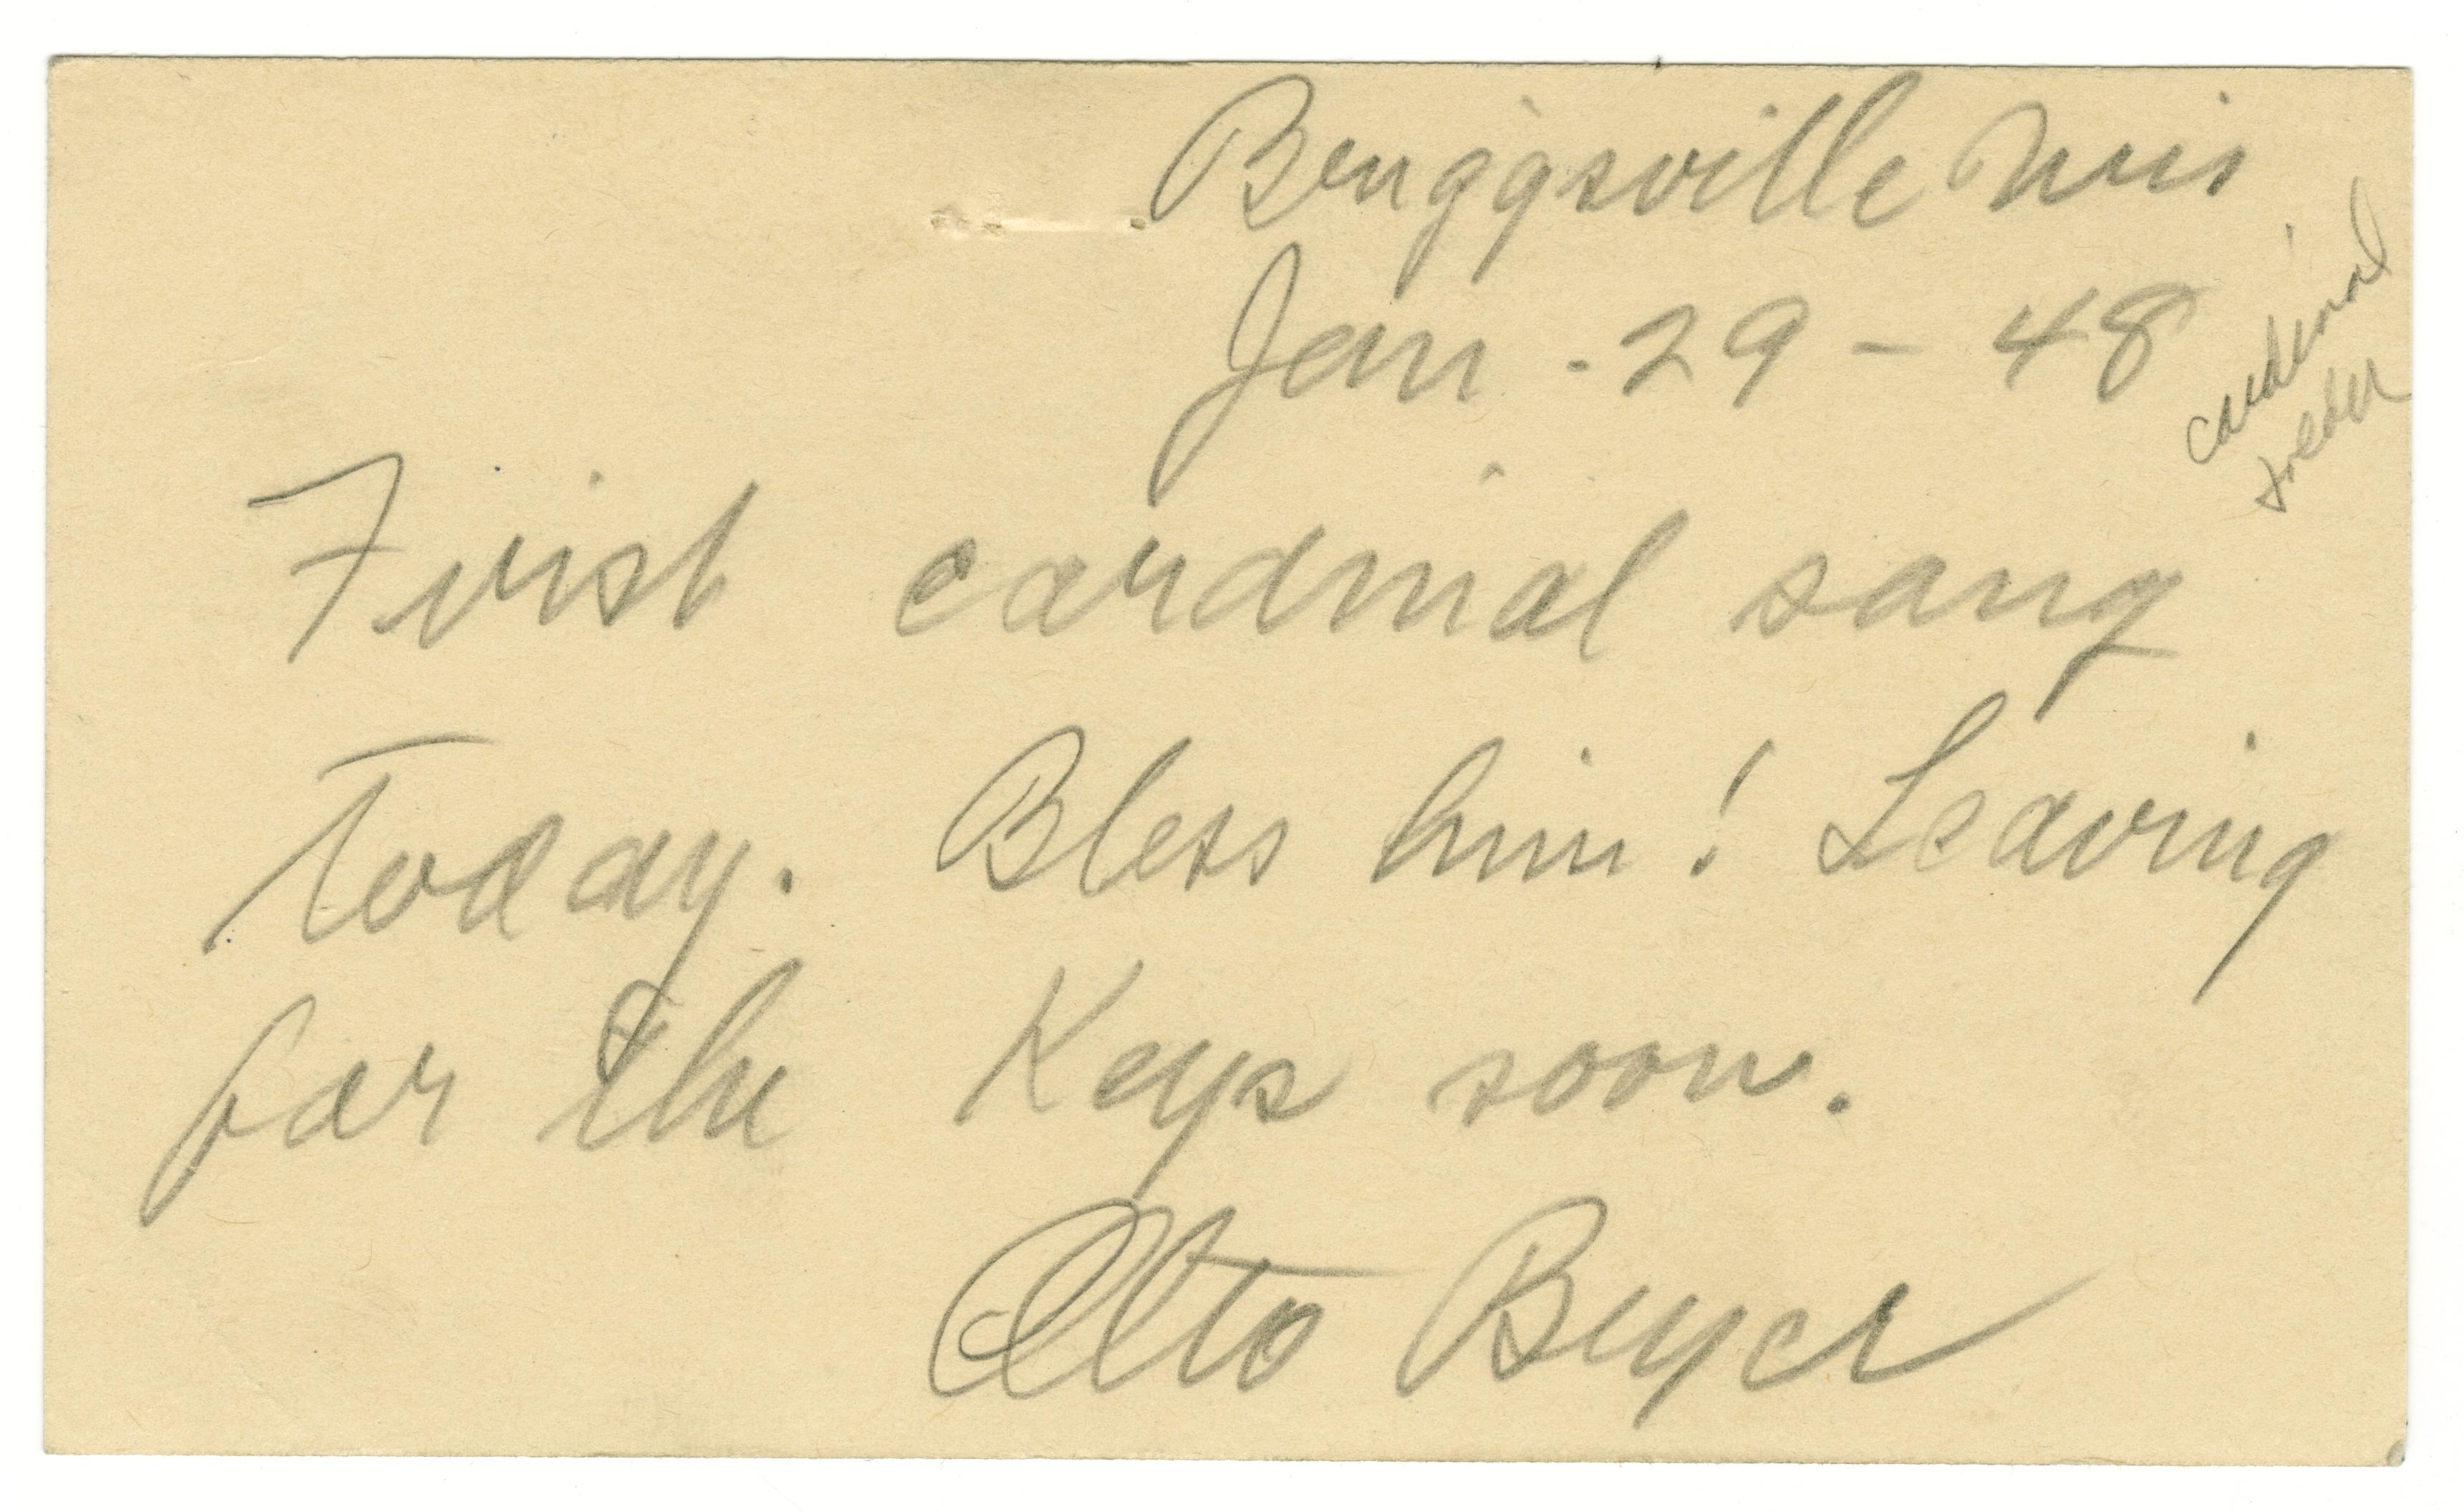 Briggsville Wis
Jan. 29 - 48
cardinal
First cardinal sang
Today. Bless him! Leaving
for the Keys soon.
Otto Beyer